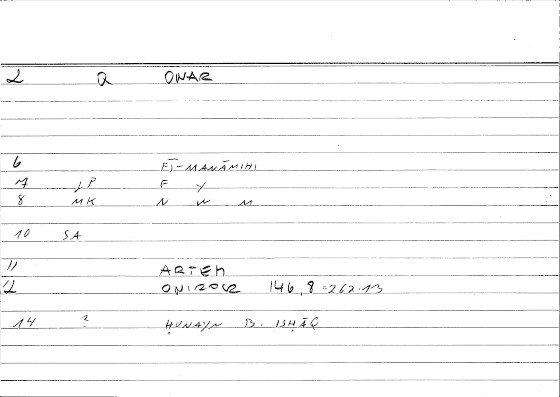 2 Q ONAR
6 FĪ-MANĀMIHI
7 LP F Y
8 MK N W M
10 SA
11 ARTEM
12 ONIROCR 146,8=262.13
14 ? ḤUNAYN B. ISḤĀQ